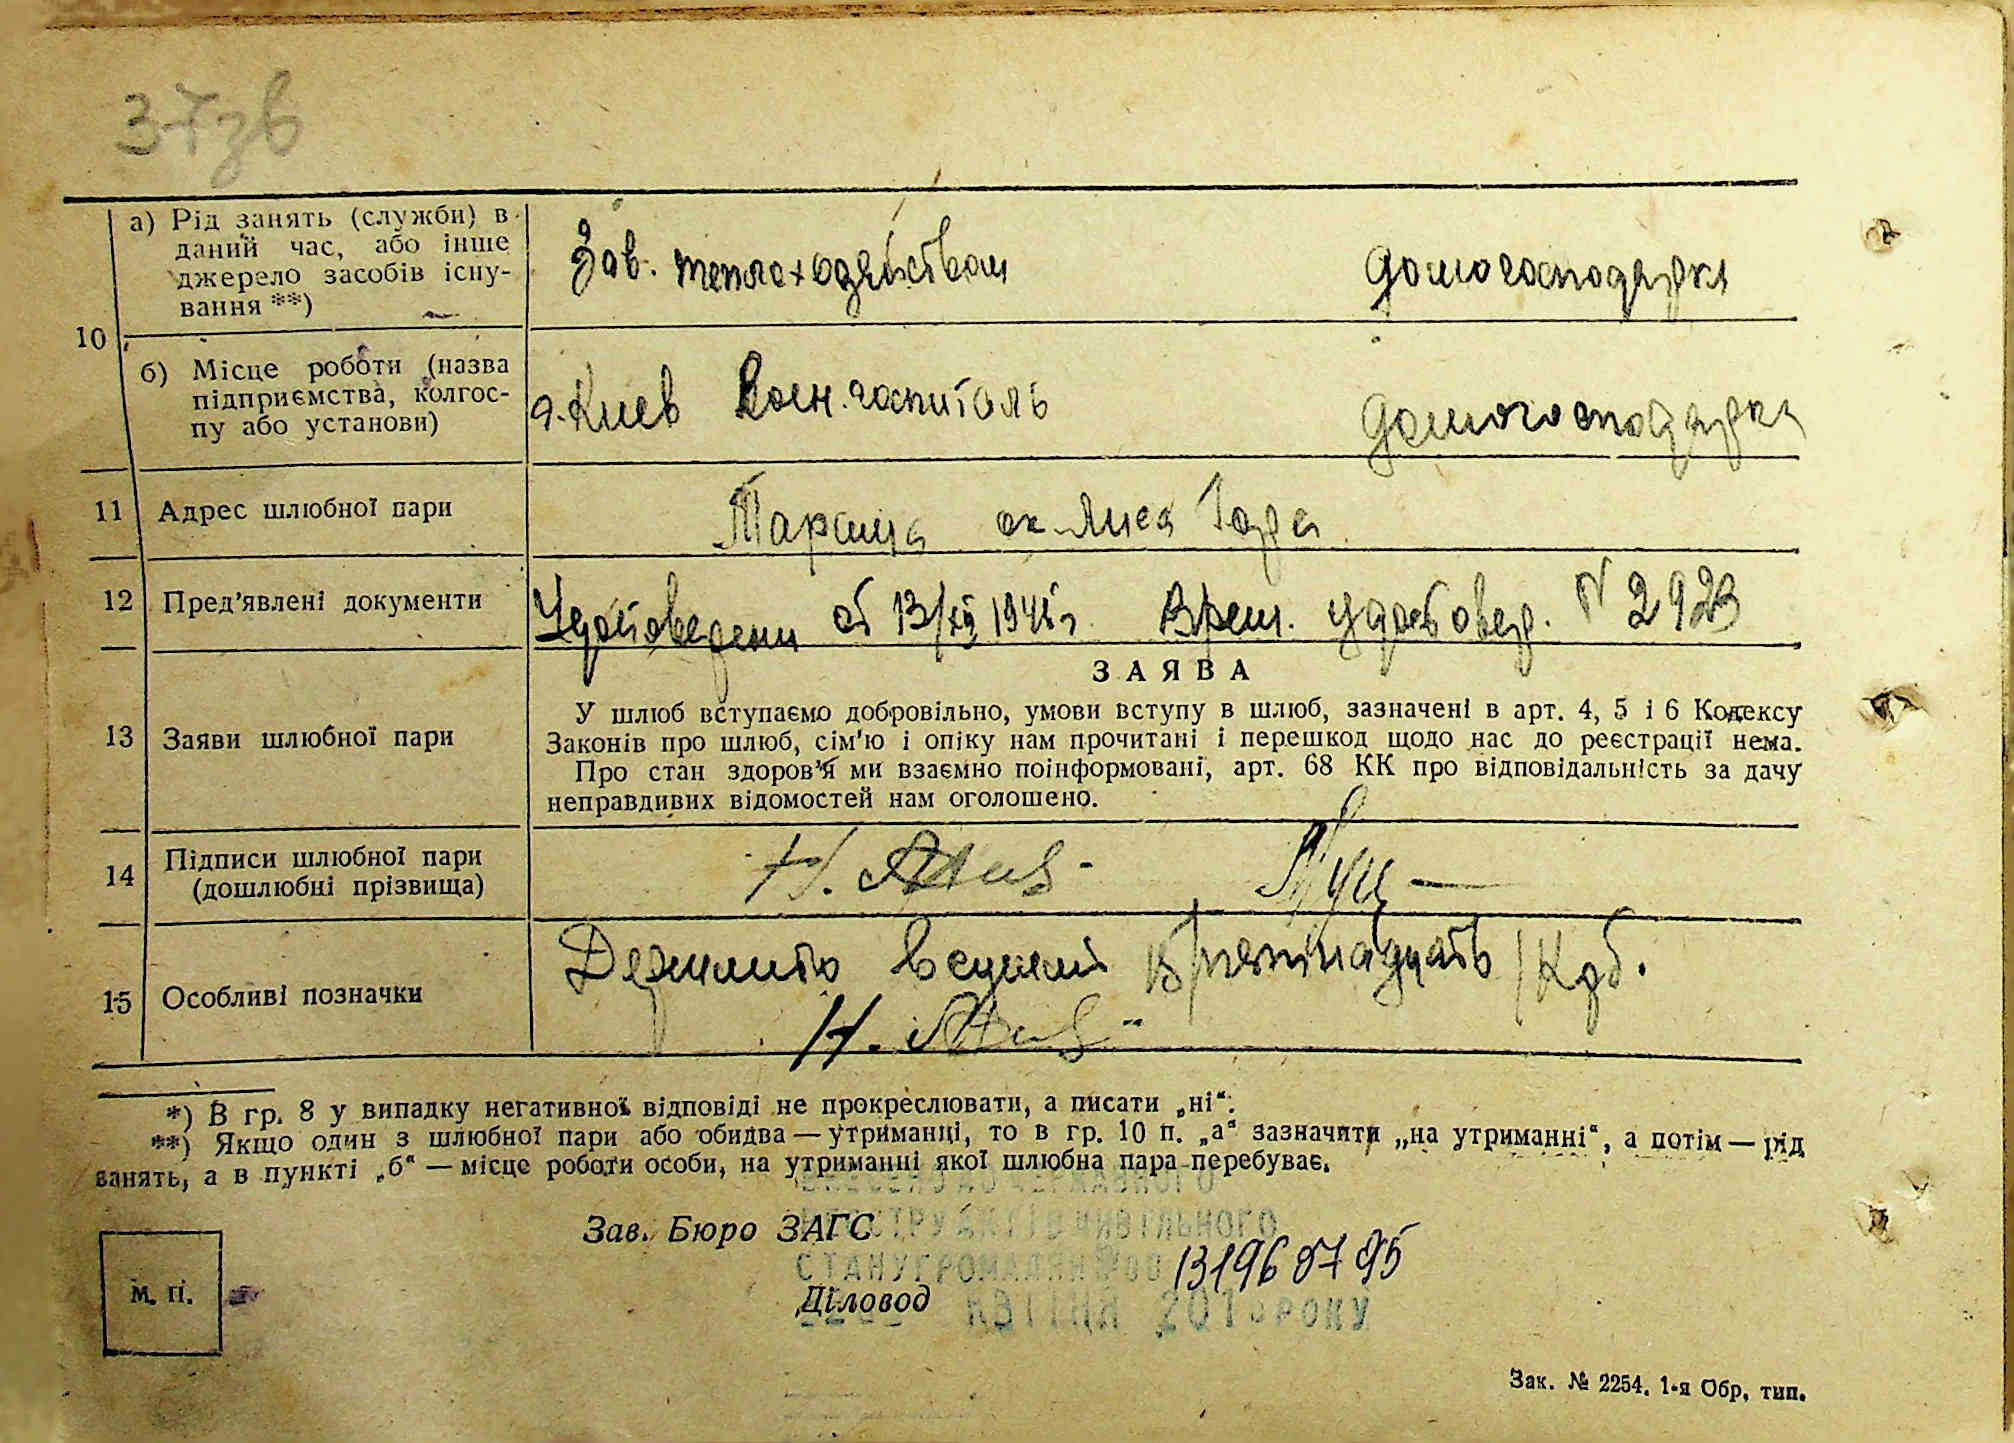 37зв
а) Рід занять (служби) в
даний час, або інше
джерело засобів існу-
вання **)
Зав. теплохозяйством
домогосподарка
10
б) Місце роботи (назва
підприємства, колгос-
пу або установи)
г. Киев Воен. госпиталь
домогосподарка
11 Адрес шлюбної пари
Тараща ок. Лиса Гора
12 Пред’явлені документи
Удостоверени от 13/XII 194 г. Врем. удостовер. № 2923
13 Заяви шлюбної пари
ЗАЯВА
У шлюб вступаємо добровільно, умови вступу в шлюб, зазначені в арт. 4, 5 і 6 Кодексу
Законів про шлюб, сім’ю і опіку нам прочитані і перешкод щодо нас до реєстрації нема.
Про стан здоров’я ми взаємно поінформовані, арт. 68 КК про відповідальність за дачу
неправдивих відомостей нам оголошено.
14 Підписи шлюбної пари
(дошлюбні прізвища)
15 Особливі позначки
Держмито
*) В гр. 8 у випадку негативної відповіді не прокреслювати, а писати „ні“.
**) Якщо один з шлюбної пари або обидва — утриманці, то в гр. 10 п. „а“ зазначити „на утриманні“, а потім — рід
занять, а в пункті „б“ — місце роботи особи, на утриманні якої шлюбна пара перебуває.
ВНЕСЕНО ДО ДЕРЖАВНОГО
Зав. Бюро ЗАГС
РЕЄСТРУ АКТІВ ЦИВІЛЬНОГО
СТАНУ ГРОМАДЯН
Діловод
КВІТНЯ РОКУ
М. П.
Зак. № 2254. 1-я Обр. тип.